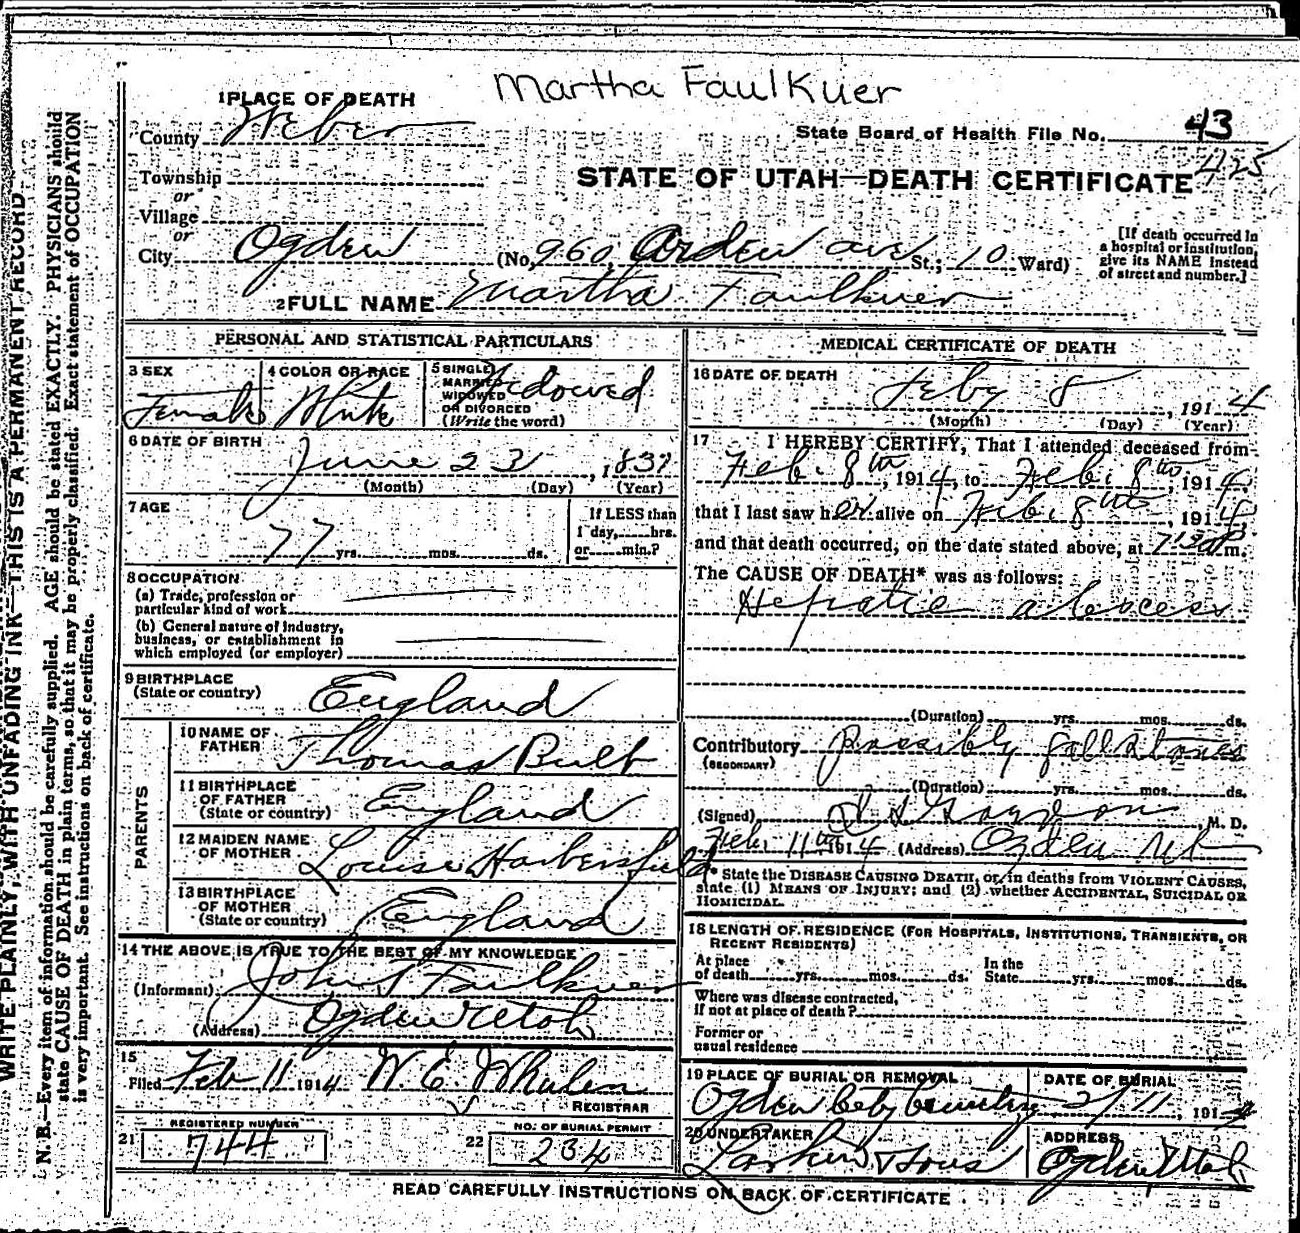 Martha Faulkuer
1 PLACE OF DEATH
County Weber
State Board of Health File No. 43
425
Township
or
Village
or
STATE OF UTAH—DEATH CERTIFICATE
City Ogden (No. 960 Arden ave St.; 10 Ward)
[If death occurred in
a hospital or institution,
give its NAME instead
of street and number.]
2 FULL NAME Martha Faulkuer
PERSONAL AND STATISTICAL PARTICULARS
3 SEX Female
4 COLOR OR RACE White
5 SINGLE
MARRIED
WIDOWED
OR DIVORCED
(Write the word) Widowed
6 DATE OF BIRTH
June 23, 1837
(Month) (Day) (Year)
7 AGE
77 yrs. mos. ds.
If LESS than
1 day, hrs.
or min.?
8 OCCUPATION
(a) Trade, profession or
particular kind of work
(b) General nature of Industry,
business, or establishment in
which employed (or employer)
9 BIRTHPLACE
(State or country) England
PARENTS
10 NAME OF
FATHER Thomas Bult
11 BIRTHPLACE
OF FATHER
(State or country) England
12 MAIDEN NAME
OF MOTHER Louise
13 BIRTHPLACE
OF MOTHER
(State or country) England
14 THE ABOVE IS TRUE TO THE BEST OF MY KNOWLEDGE
(Informant) John S Faulkuer
(Address) Ogden Utah
15
Filed Feb 11 1914 W. E. Whalen
REGISTRAR
REGISTERED NUMBER
21 744
NO. OF BURIAL PERMIT
22 234
MEDICAL CERTIFICATE OF DEATH
16 DATE OF DEATH
Feby 8, 1914
(Month) (Day) (Year)
17 I HEREBY CERTIFY, That I attended deceased from
Feb. 8th, 1914, to Feb. 8th, 1914,
that I last saw her alive on Feb. 8th, 1914,
and that death occurred, on the date stated above, at 7:30 P m.
The CAUSE OF DEATH* was as follows:
Hepatic abscess
(Duration) yrs. mos. ds.
Contributory possibly gallstones
(SECONDARY)
(Duration) yrs. mos. ds.
(Signed) M. D.
Feb. 11th, 1914 (Address) Ogden Ut
* State the DISEASE CAUSING DEATH, or, in deaths from VIOLENT CAUSES,
state (1) MEANS OF INJURY; and (2) whether ACCIDENTAL, SUICIDAL OR
HOMICIDAL.
18 LENGTH OF RESIDENCE (FOR HOSPITALS, INSTITUTIONS, TRANSIENTS, OR
RECENT RESIDENTS)
At place In the
of death yrs. mos. ds. State yrs. mos. ds.
Where was disease contracted,
if not at place of death?
Former or
usual residence
19 PLACE OF BURIAL OR REMOVAL
Ogden City Cemetery
DATE OF BURIAL
2/11, 1914
20 UNDERTAKER
Larkin & Sons
ADDRESS
Ogden Utah
READ CAREFULLY INSTRUCTIONS ON BACK OF CERTIFICATE
WRITE PLAINLY, WITH UNFADING INK—THIS IS A PERMANENT RECORD
N. B.—Every item of information should be carefully supplied. AGE should be stated EXACTLY. PHYSICIANS should
state CAUSE OF DEATH in plain terms, so that it may be properly classified. Exact statement of OCCUPATION
is very important. See instructions on back of certificate.